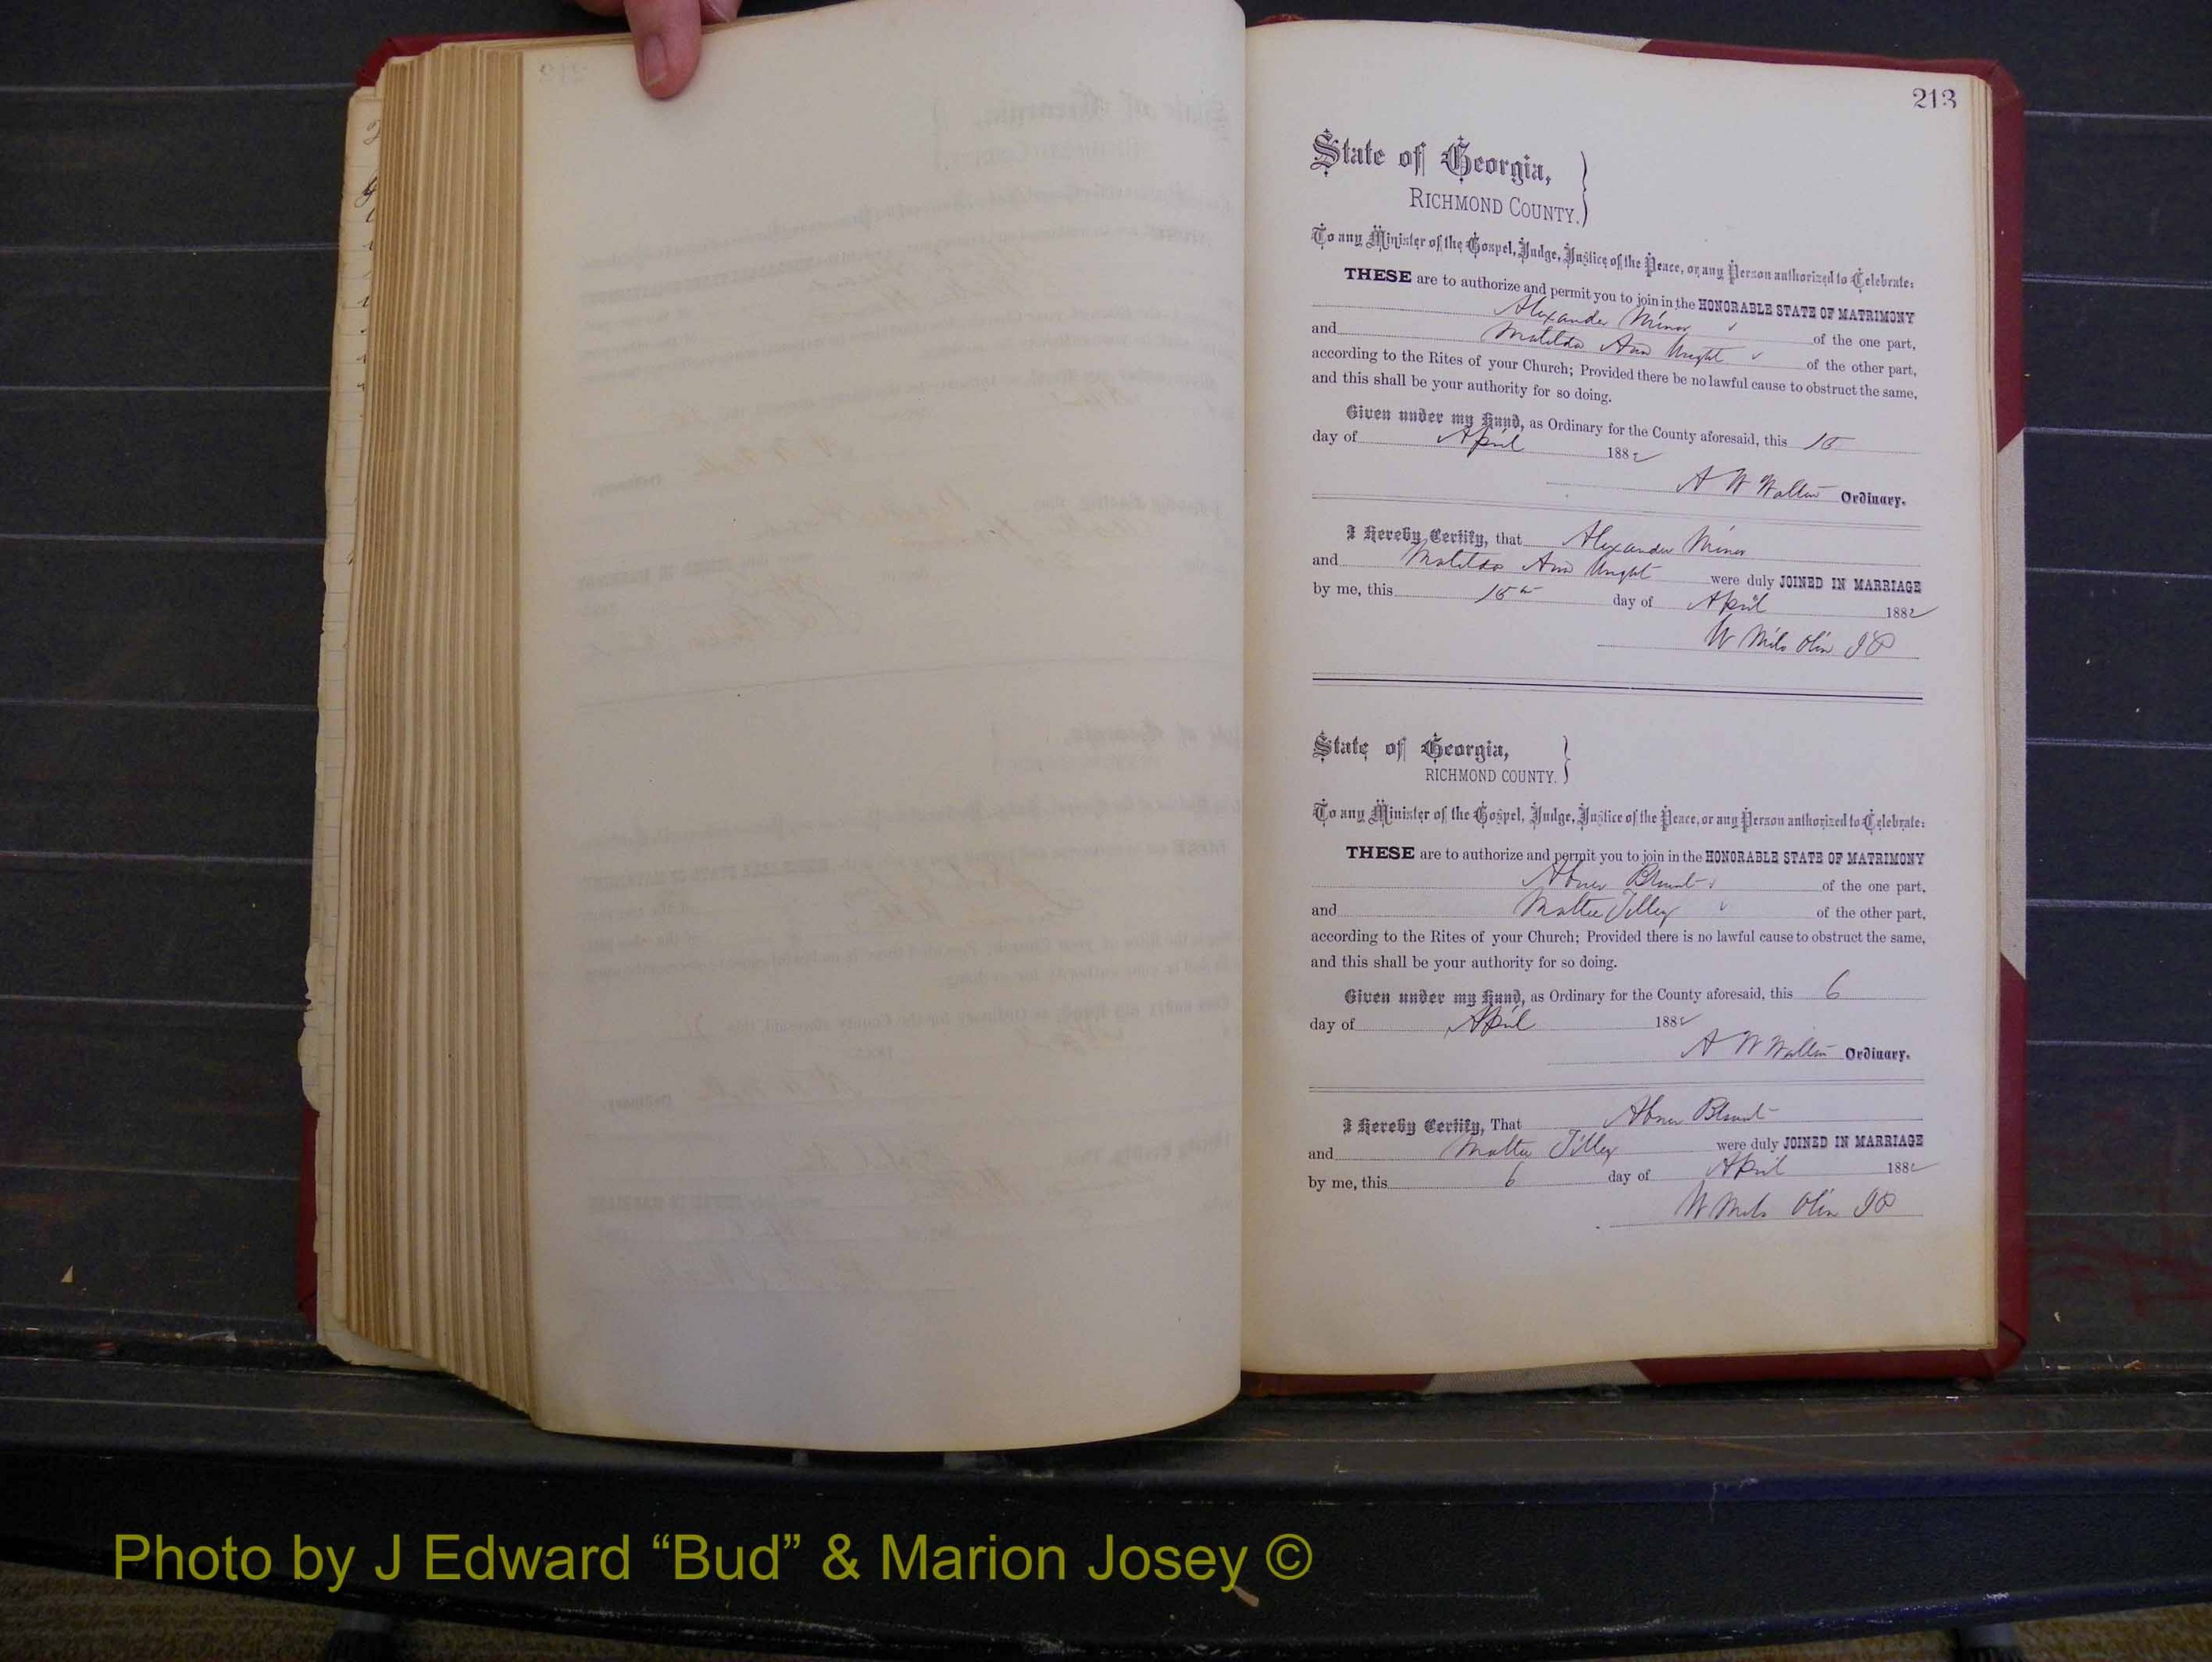 213
State of Georgia,
RICHMOND COUNTY.
To any Minister of the Gospel, Judge, Justice of the Peace, or any Person authorized to Celebrate:
THESE are to authorize and permit you to join in the HONORABLE STATE OF MATRIMONY
Alexander Minor of the one part,
and Matilda Ann Wright of the other part,
according to the Rites of your Church; Provided there be no lawful cause to obstruct the same,
and this shall be your authority for so doing.
Given under my Hand, as Ordinary for the County aforesaid, this 15
day of April 1882
A W Walton Ordinary.
I Hereby Certify, that Alexander Minor
and Matilda Ann Wright were duly JOINED IN MARRIAGE
by me, this 15 day of April 1882
W Milo Olin JP
State of Georgia,
RICHMOND COUNTY.
To any Minister of the Gospel, Judge, Justice of the Peace, or any Person authorized to Celebrate:
THESE are to authorize and permit you to join in the HONORABLE STATE OF MATRIMONY
Abner Blount of the one part,
and Mattie Tilley of the other part,
according to the Rites of your Church; Provided there is no lawful cause to obstruct the same,
and this shall be your authority for so doing.
Given under my Hand, as Ordinary for the County aforesaid, this 6
day of April 1882
A W Walton Ordinary.
I Hereby Certify, That Abner Blount
and Mattie Tilley were duly JOINED IN MARRIAGE
by me, this 6 day of April 1882
W Milo Olin JP
Photo by J Edward “Bud” & Marion Josey ©